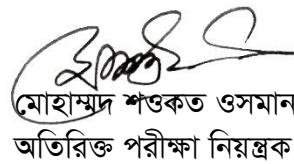 মোহাম্মদ শওকত ওসমান
অতিরিক্ত পরীক্ষা নিয়ন্ত্রক